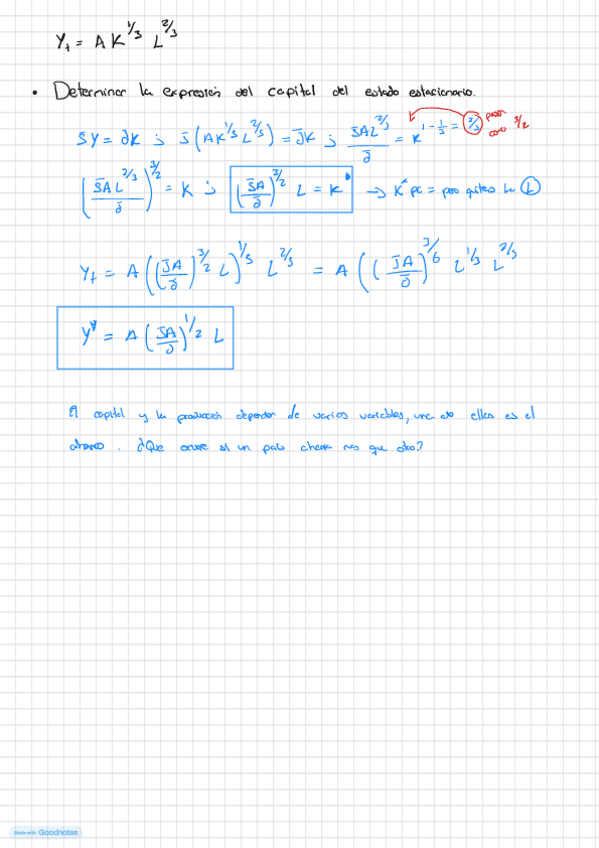 Yₜ = A K^1/3 L^2/3
• Determinar la expresión del capital del estado estacionario.
s̄Y = ∂K ; s̄(AK^1/3 L^2/3) = ∂̄K ; s̄AL^2/3 / ∂̄ = K^1 - 1/3 = 2/3 pasar como 3/2
(s̄AL^2/3 / ∂̄)^3/2 = K ; (s̄A / ∂̄)^3/2 L = K* → K* pc = pero quitero la L
Yₜ = A((s̄A / ∂̄)^3/2 L)^1/3 L^2/3 = A((s̄A / ∂̄)^3/6 L^1/3 L^2/3
Y* = A(s̄A / ∂̄)^1/2 L
El capital y la producción dependen de varios variables, una de ellas es el
ahorro. ¿Que ocurre si un país ahorra mas que otro?
Made with Goodnotes